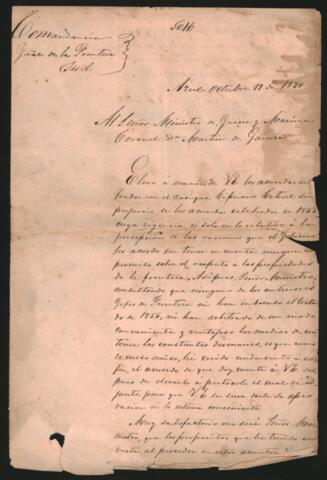 Comandancia
Gral de la Frontera
Sud
Azul Octubre 12 de 1870
Al Señor Ministro de Guerra y Marina
Coronel Dn Martin de Gainza
Elevo á manos de VE los acuerdos cele
brados con el cacique Cipriano Catriel sin
perjuicio de los acuerdos celebrados en 1856
cuya vigencia es solo en lo relativo á la
percepcion de las raciones que el Gobierno
les acordó sin tener en cuenta ningun com
promiso sobre el respeto á las propiedades
de la frontera. Asi pues, Señor Ministro,
consultando que ninguno de los anteriores
Jefes de Frontera ni han
de 1856, ni han arbitrado de un modo
conveniente y ventajoso los medios de con
tener los constantes desmanes, es que como
recurso único, he creido conducente á este
fin, el acuerdo de que doy cuenta á VE des
pues de elevarlo á protocolo el cual va ad
junto, para que VE se sirva darle su apro
vacion si lo estima conveniente.
Muy satisfactorio me será Señor Mi
nistro, que los propositos que he tenido en
vista al proceder en este asunto